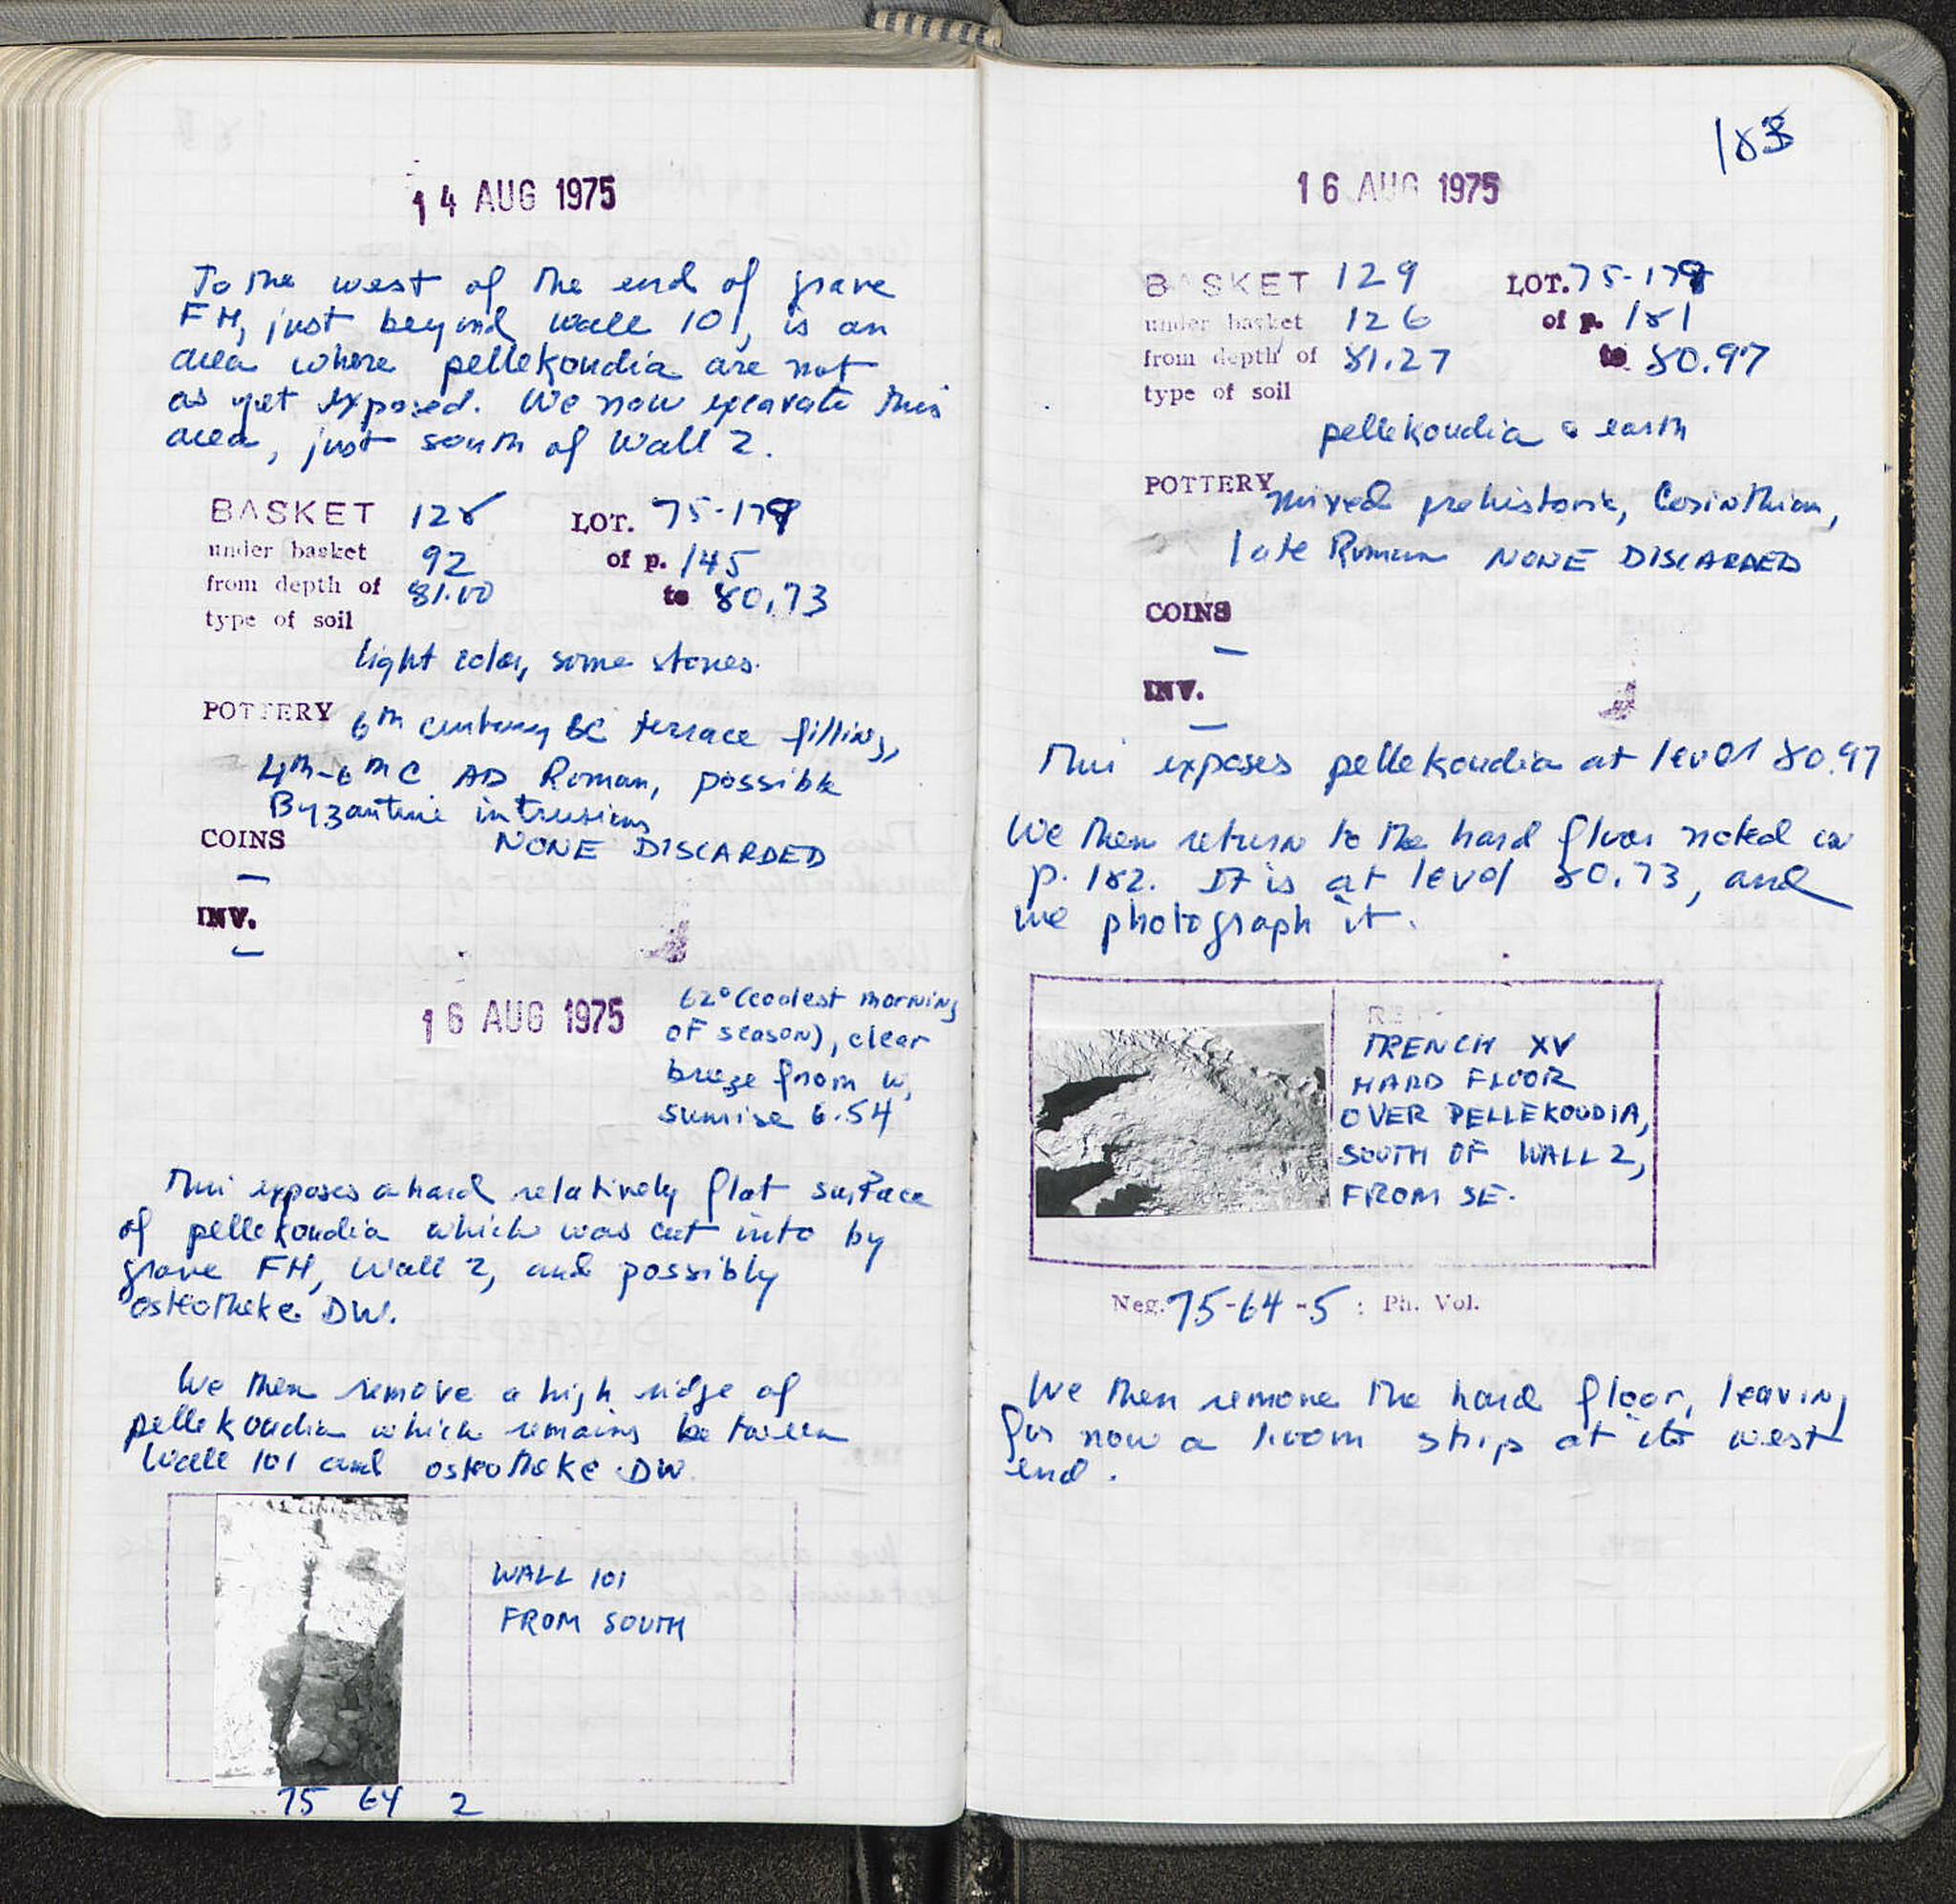 14 AUG 1975
To the west of the end of grave
FH, just beyond wall 101, is an
area where pellekoudia are not
as yet exposed. We now excavate this
area, just south of Wall 2.
BASKET 128 LOT. 75-179
under basket 92 of p. 145
from depth of 81.00 to 80.73
type of soil
light color, some stones.
POTTERY 6th century BC terrace filling,
4th-6th C AD Roman, possible
Byzantine intrusions
COINS NONE DISCARDED
—
INV.
—
16 AUG 1975
62° (coolest morning
OF season), clear
breeze from W,
sunrise 6.54
This exposes a hard relatively flat surface
of pellekoudia which was cut into by
grave FH, Wall 2, and possibly
osteotheke DW.
We then remove a high ridge of
pellekoudia which remains between
Wall 101 and osteotheke DW.
WALL 101
FROM SOUTH
75 64 2
183
16 AUG 1975
BASKET 129 LOT. 75-179
under basket 126 of p. 181
from depth of 81.27 to 80.97
type of soil
pellekoudia & earth
POTTERY mixed prehistoric, Corinthian,
late Roman NONE DISCARDED
COINS
—
INV.
—
This exposes pellekoudia at level 80.97
We then return to the hard floor noted on
p. 182. It is at level 80.73, and
we photograph it.
TRENCH XV
HARD FLOOR
OVER PELLEKOUDIA,
SOUTH OF WALL 2,
FROM SE.
Neg. 75-64-5 : Ph. Vol.
We then remove the hard floor, leaving
for now a strip at its west
end.